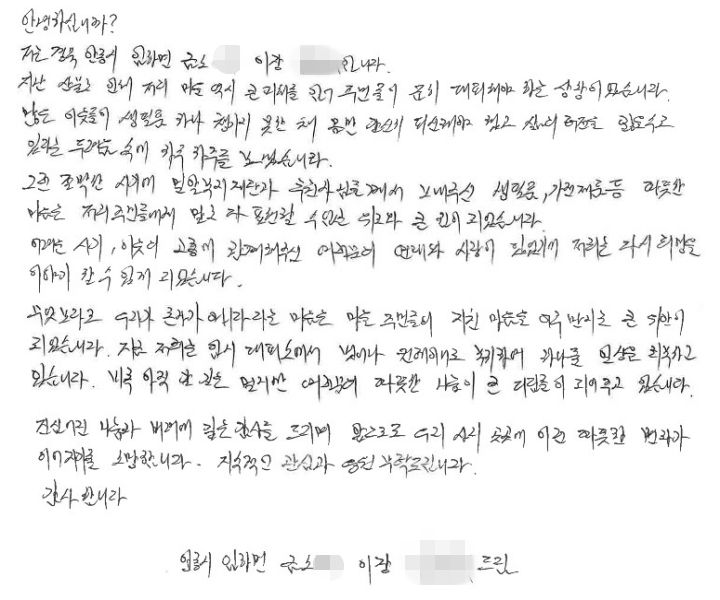 안녕하십니까?
저는 경북 안동시 임하면 금소 이장 입니다.
지난 산불로 인해 저희 마을 역시 큰 피해를 입어 주민들이 급히 대피해야 하는 상황이었습니다.
많은 이웃들이 생필품 하나 챙기지 못한 채 몸만 간신히 피신해야 했고 삶의 터전을 잃고
두려움 속에 하루 하루를 보냈습니다.
그런 절박한 시기에 밀알복지재단과 후원자님들께서 보내주신 생필품, 가전제품 등 따뜻한
마음은 저희 주민들에게 말로 다 표현할 수 없는 위로와 큰 힘이 되었습니다.
어려운 시기, 이웃의 고통에 함께해주신 여러분의 연대와 사랑이 있었기에 저희는 다시 희망을
이야기 할 수 있게 되었습니다.
무엇보다도 우리가 혼자가 아니다 라는 마음은 마을 주민들의 지친 마음을 어루만지는 큰 위안이
되었습니다. 지금 저희는 임시 대피소에서 벗어나 원래대로 복귀하여 하나둘 일상을 회복하고
있습니다. 비록 아직 갈 길은 멀지만 여러분의 따뜻한 나눔이 큰 디딤돌이 되어주고 있습니다.
진심어린 나눔과 배려에 깊은 감사를 드리며 앞으로도 우리 사회 곳곳에 이런 따뜻한 변화가
이어지기를 소망합니다. 지속적인 관심과 응원 부탁드립니다.
감사합니다
안동시 임하면 금소 이장 드림